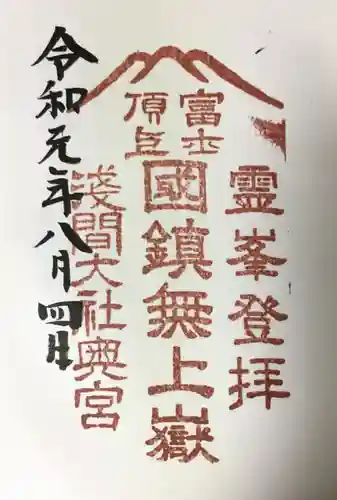 霊峯登拝
富士
頂上
國鎮無上嶽
淺間大社奥宮
令和元年八月四日